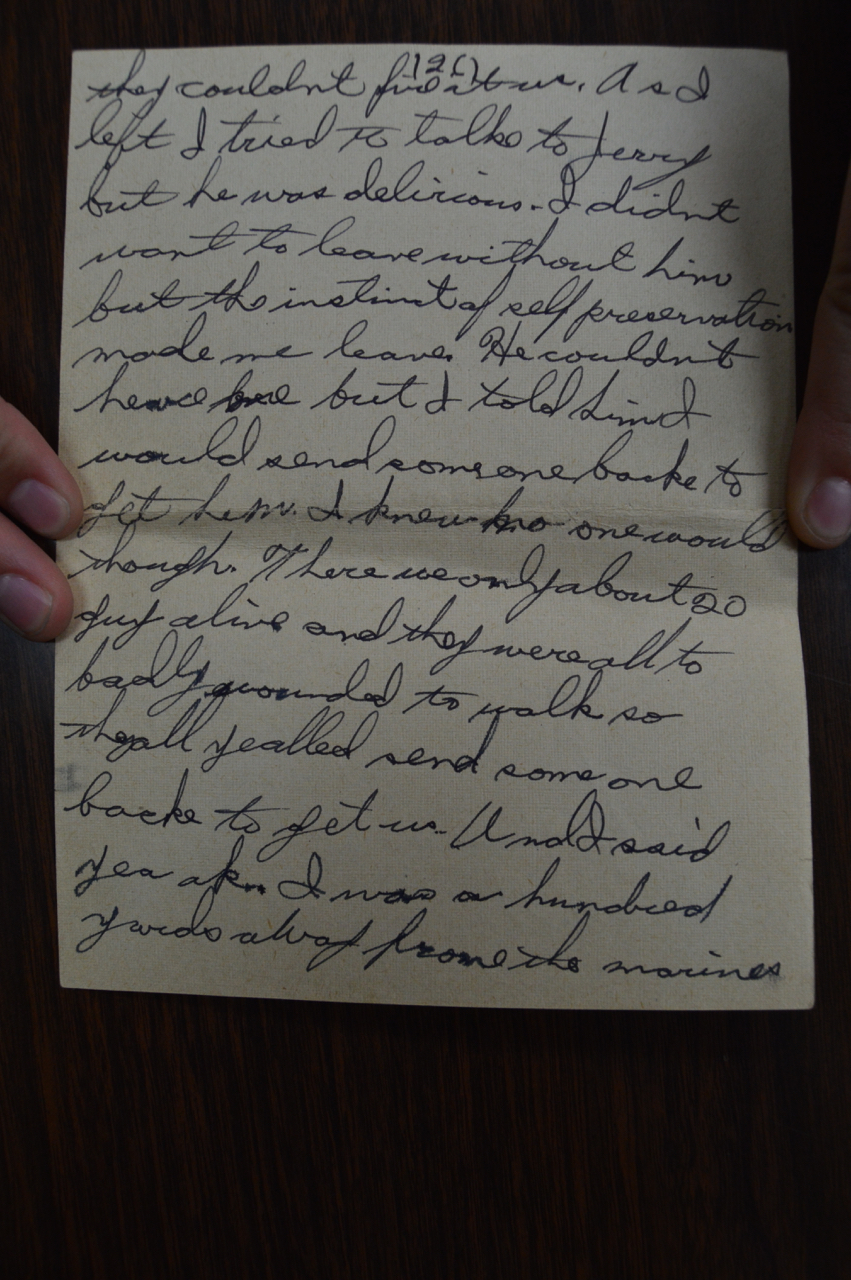 12()
they couldnt fire at us. As I
left I tried to talke to Jerry
but he was delirious. I didnt
want to leave without him
but the instinct of self preservation
made me leave. He couldnt
heare me but I told him I
would send someone backe to
get him. I knew no one would
though. There we only about 20
guy alive and they were all to
badly wounded to walk so
they all yealled send some one
backe to get us. And I said
yea ok. I was a hundred
yards away frome the marines